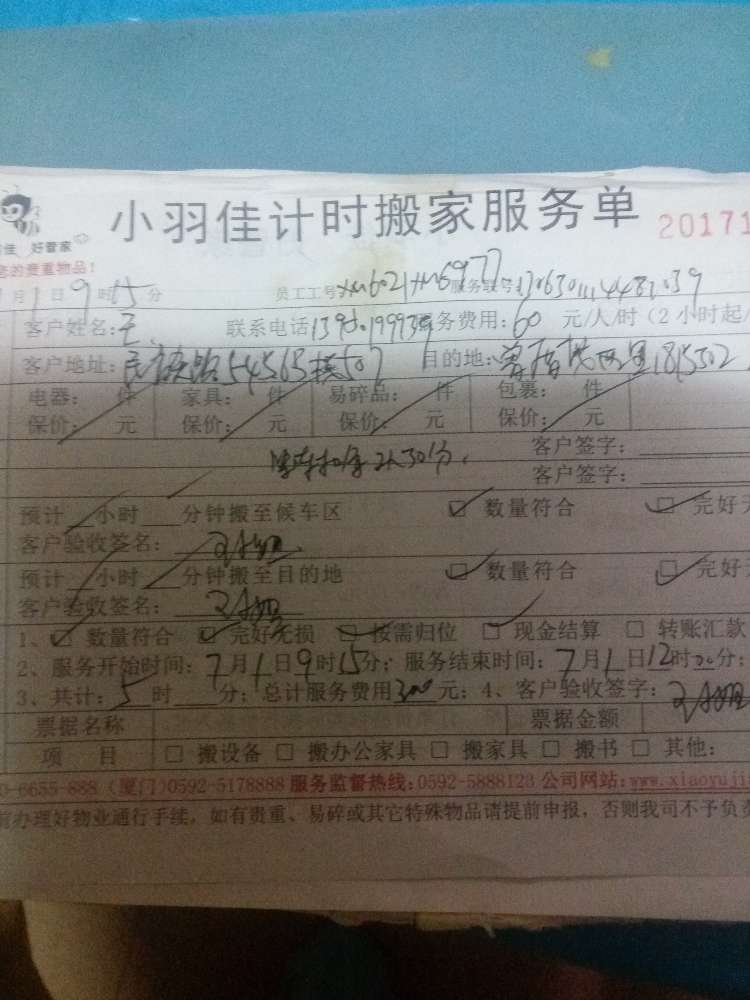 小羽佳计时搬家服务单 20171
佳 好管家
的贵重物品!
月1日9时15分 员工工号 xm6021 xm6977 服务联号
客户姓名:王 联系电话 服务费用:60 元/人/时(2小时起/
客户地址: 507 目的地: 里18号502
电器: 件 家具: 件 易碎品: 件 包裹: 件
保价: 元 保价: 元 保价: 元 保价: 元
2人30分. 客户签字:
客户签字:
预计 小时 分钟搬至候车区 ☑ 数量符合 ☑ 完好无
客户验收签名:
预计 小时 分钟搬至目的地 ☑ 数量符合 ☑ 完好无
客户验收签名:
1、☑ 数量符合 ☑ 完好无损 ☑ 按需归位 ☑ 现金结算 □ 转账汇款
2、服务开始时间:7月1日9时15分;服务结束时间:7月1日12时 分;
3、共计:5时 分;总计服务费用300元;4、客户验收签字:
票据名称 票据金额
项 目 □ 搬设备 □ 搬办公家具 □ 搬家具 □ 搬书 □ 其他:
0-6655-888 (厦门)0592-5178888 服务监督热线:0592-5888123 公司网站:www.xiaoyuji
前办理好物业通行手续,如有贵重、易碎或其它特殊物品请提前申报,否则我司不予负责